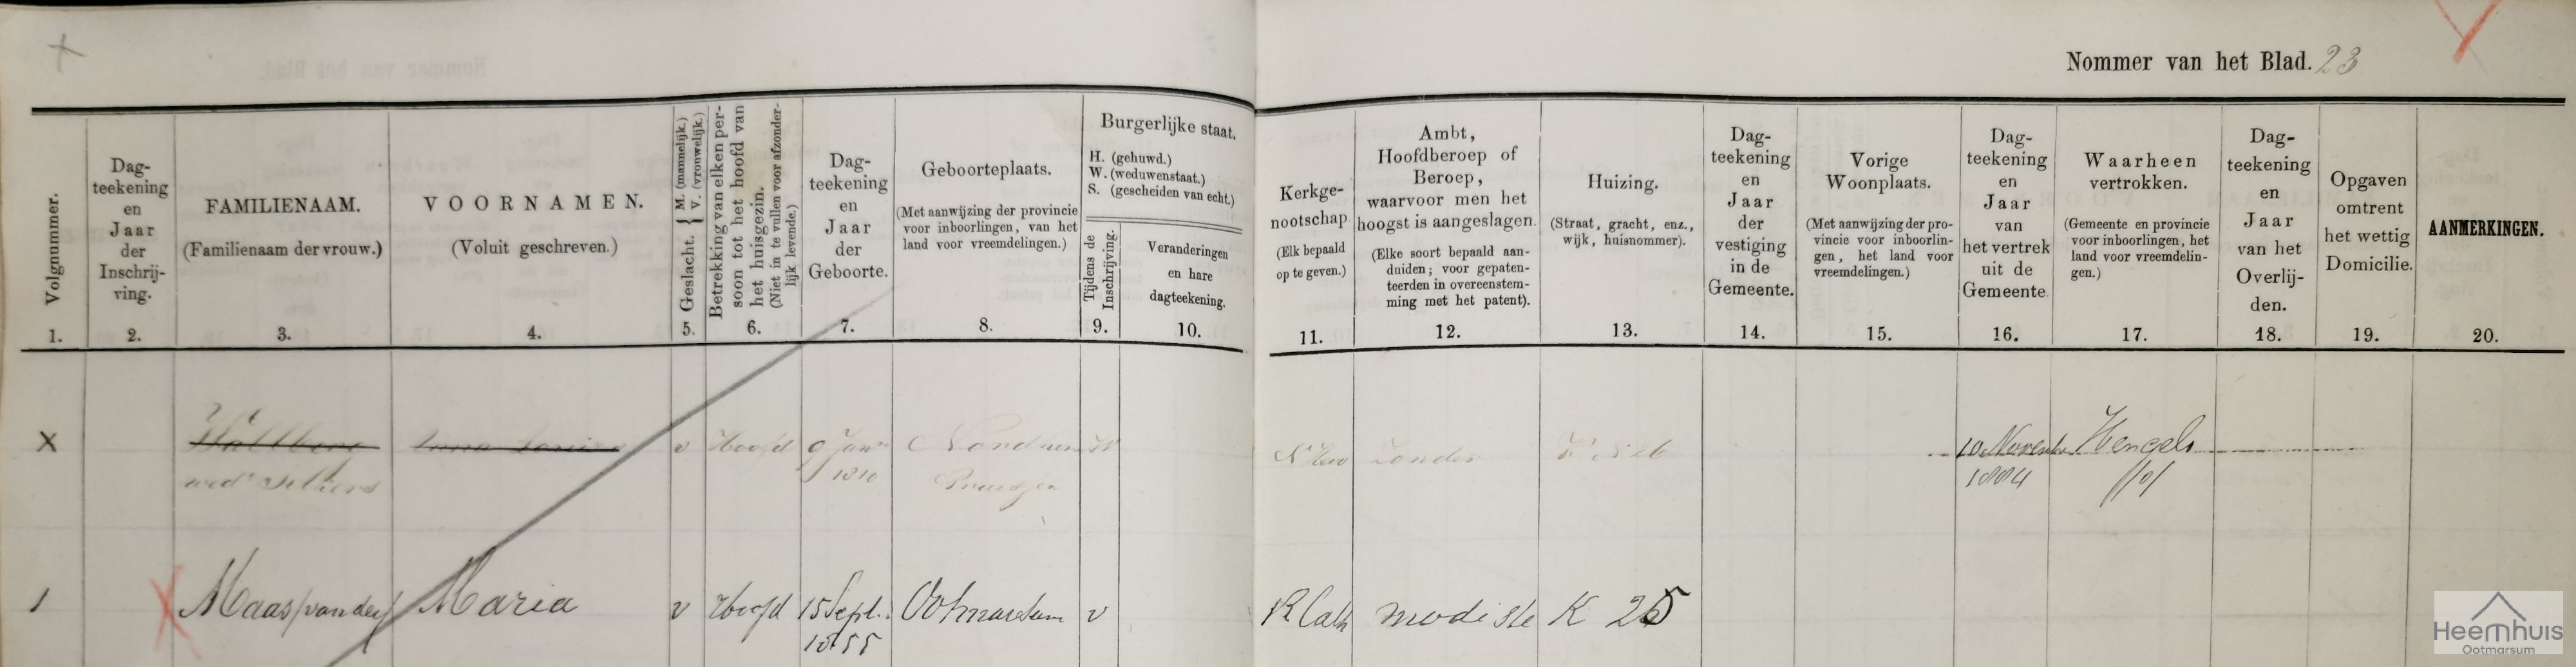 Nommer van het Blad. 23
Volgnummer.
1.
Dag-
teekening
en
Jaar
der
Inschrij-
ving.
2.
FAMILIENAAM.
(Familienaam der vrouw.)
3.
VOORNAMEN.
(Voluit geschreven.)
4.
Geslacht. { M. (mannelijk.)
V. (vrouwelijk.)
5.
Betrekking van elken per-
soon tot het hoofd van
het huisgezin.
(Niet in te vullen voor afzonder-
lijk levende.)
6.
Dag-
teekening
en
Jaar
der
Geboorte.
7.
Geboorteplaats.
(Met aanwijzing der provincie
voor inboorlingen, van het
land voor vreemdelingen.)
8.
Burgerlijke staat.
H. (gehuwd.)
W. (weduwenstaat.)
S. (gescheiden van echt.)
Tijdens de
Inschrijving.
9.
Veranderingen
en hare
dagteekening.
10.
Kerkge-
nootschap
(Elk bepaald
op te geven.)
11.
Ambt,
Hoofdberoep of
Beroep,
waarvoor men het
hoogst is aangeslagen.
(Elke soort bepaald aan-
duiden; voor gepaten-
teerden in overeenstem-
ming met het patent).
12.
Huizing.
(Straat, gracht, enz.,
wijk, huisnommer).
13.
Dag-
teekening
en
Jaar
der
vestiging
in de
Gemeente.
14.
Vorige
Woonplaats.
(Met aanwijzing der pro-
vincie voor inboorlin-
gen, het land voor
vreemdelingen.)
15.
Dag-
teekening
en
Jaar
van
het vertrek
uit de
Gemeente
16.
Waarheen
vertrokken.
(Gemeente en provincie
voor inboorlingen, het
land voor vreemdelin-
gen.)
17.
Dag-
teekening
en
Jaar
van het
Overlij-
den.
18.
Opgaven
omtrent
het wettig
Domicilie.
19.
AANMERKINGEN.
20.
X v Hoofd 9 Jan zonder 10 Novemb Hengelo
wed 1810 Pruissen 1884
1 Maas (van der) Maria v Hoofd 15 Sept. Ootmarsum v R Cath modiste K 25
1855
Heemhuis
Ootmarsum